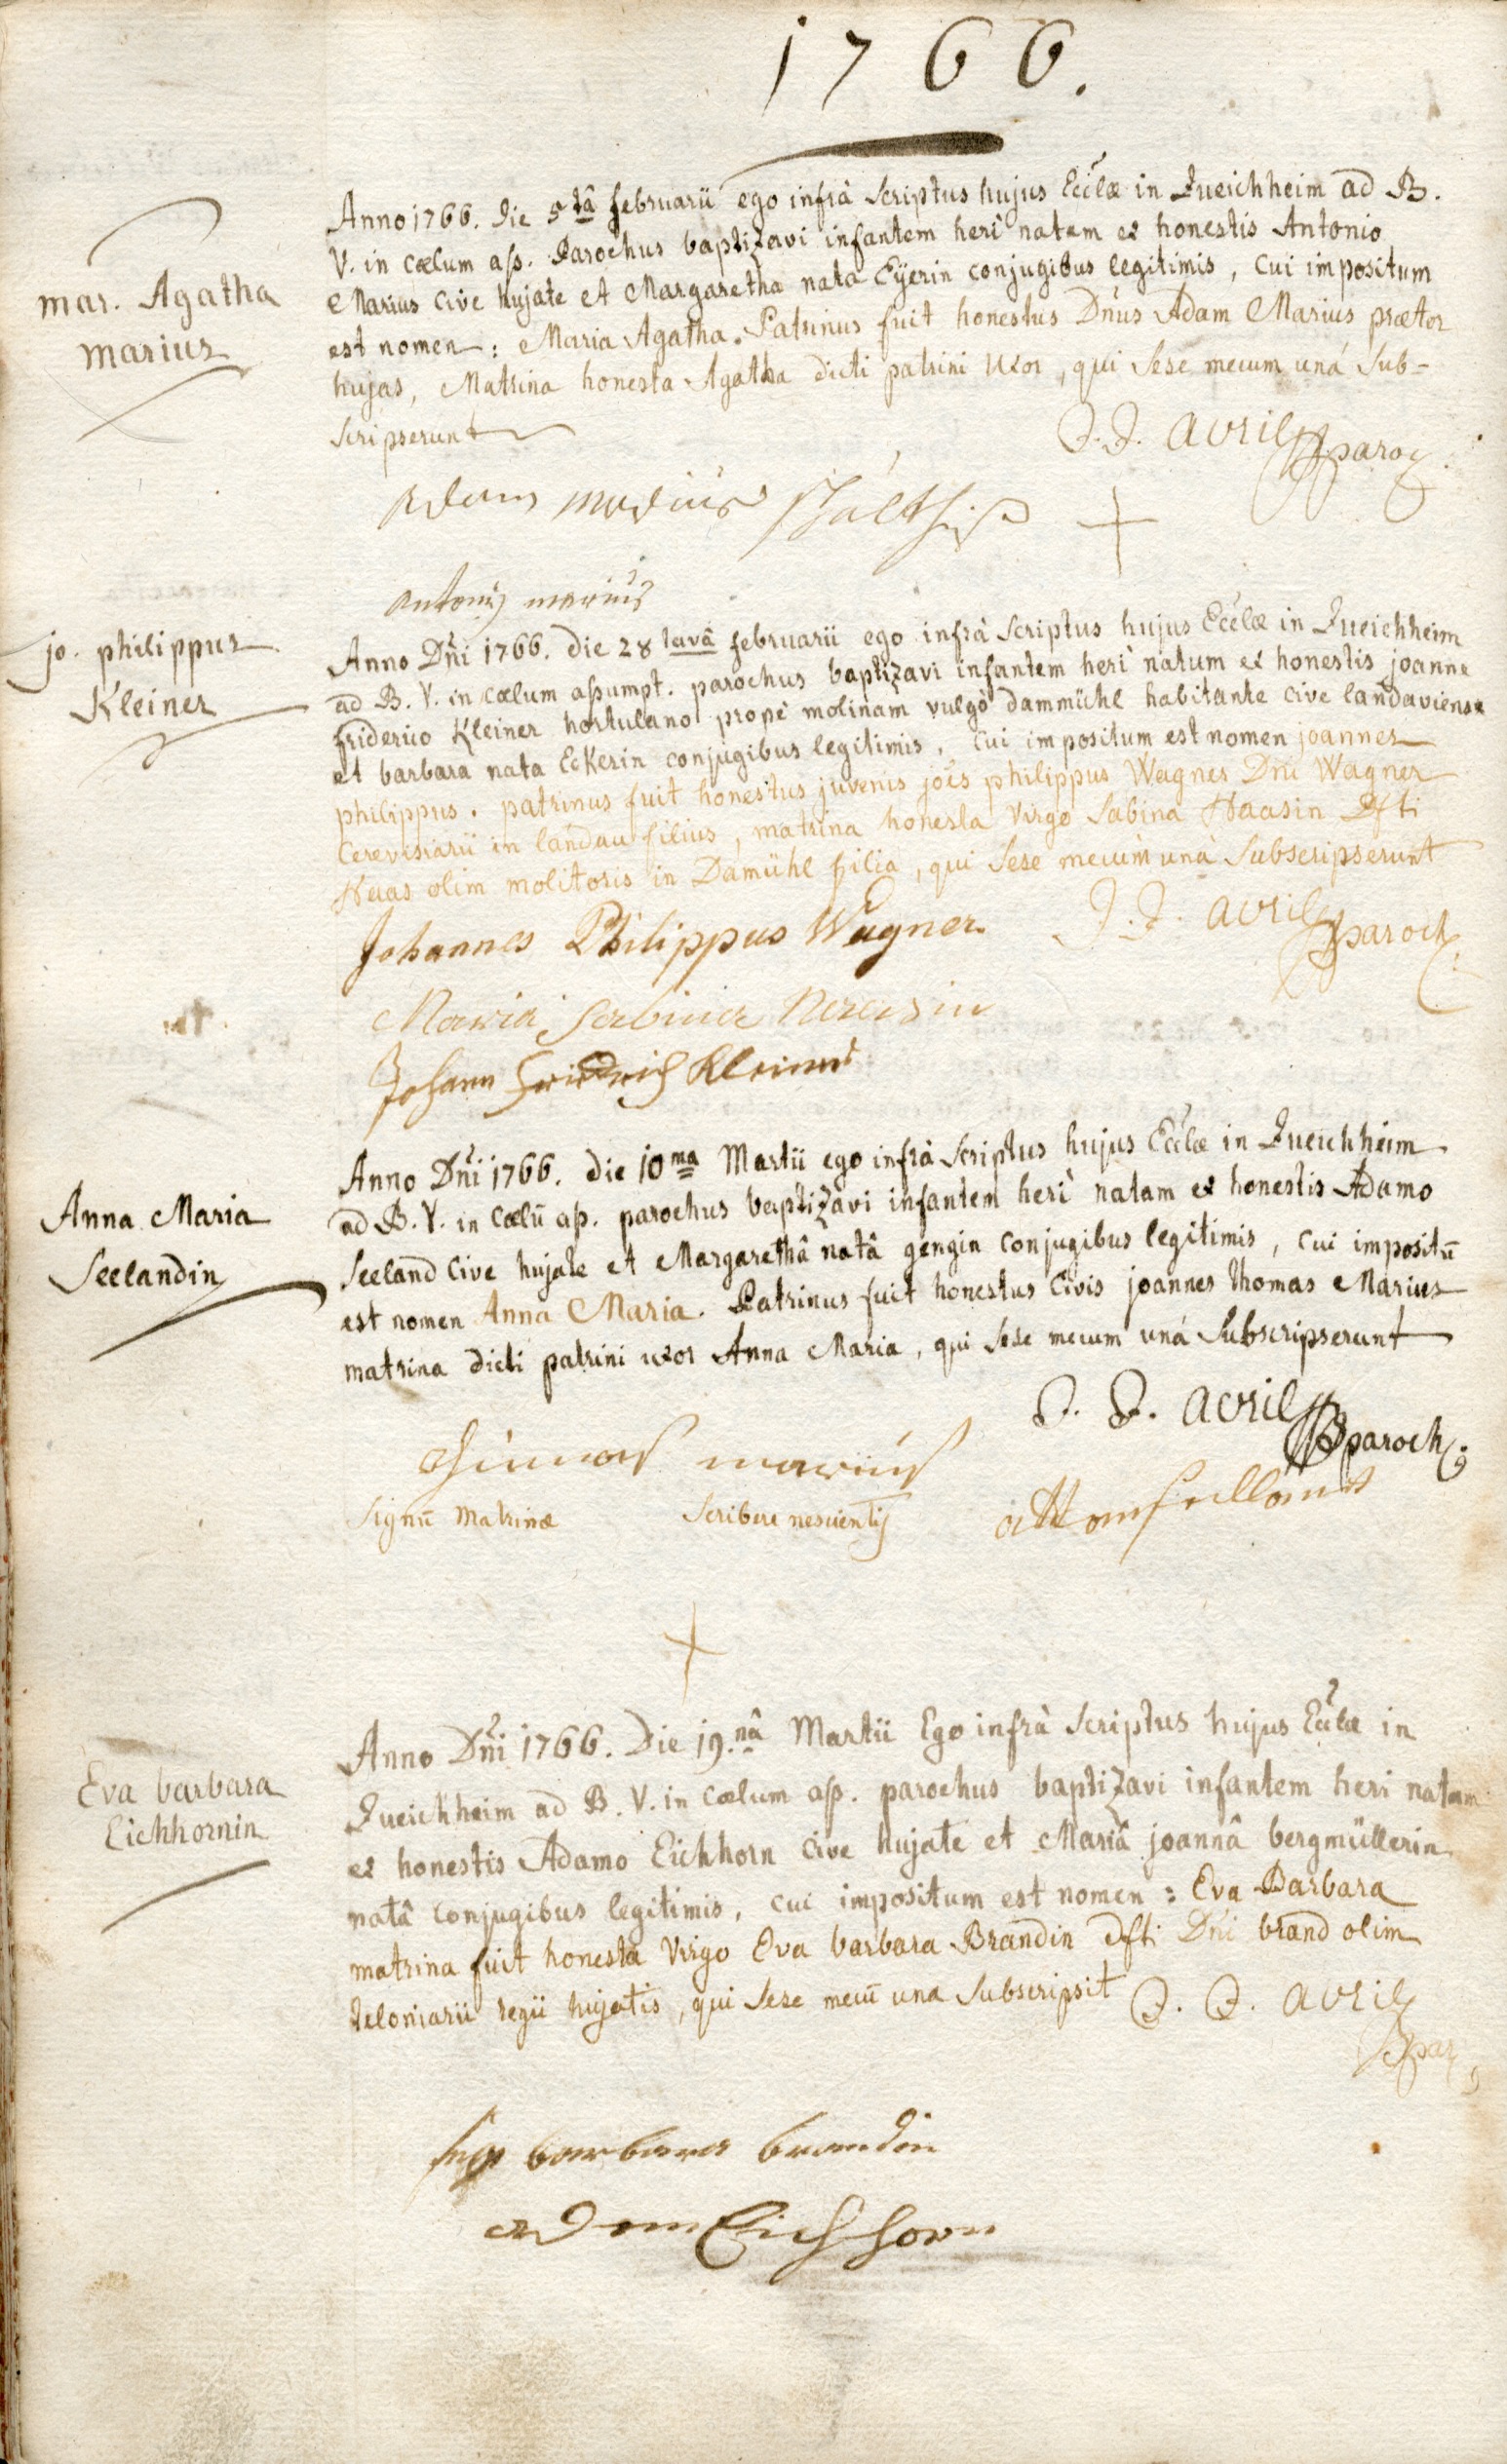 1766.
mar. Agatha
marius
Anno 1766. die 5tâ februarii ego infrà scriptus hujus Eccl̃æ in Queichheim ad B.
V. in cœlum ass. Parochus baptizavi infantem heri natam ex honestis Antonio
Marius cive hujate et Margaretha nata Eÿerin conjugibus legitimis, cui impositum
est nomen: Maria Agatha. Patrinus fuit honestus Dñus Adam Marius prætor
hujas, Matrina honesta Agatha dicti patrini uxor, qui sese mecum unà sub-
scripserunt
J. J. avril paroch.
adam marius schultheiß +
antoni marius
jo. philippus
Kleiner
Anno Dñi 1766. die 28 tavâ februarii ego infrà scriptus hujus Eccl̃æ in Queichheim
ad B. V. in cœlum assumpt. parochus baptizavi infantem heri natum ex honestis joanne
friderico Kleiner hortulano propè molinam vulgò dammühl habitante cive landaviense
et barbara nata Eckerin conjugibus legitimis, cui impositum est nomen joannes
philippus. patrinus fuit honestus juvenis joẽs philippus Wagner Dñi Wagner
Cerevisiarii in landau filius, matrina honesta virgo Sabina Haasin Dfti
Haas olim molitoris in Damühl filia, qui sese mecum unà subscripserunt
J. J. avril paroch.
Johannes Philippus Wagner
Maria Sabina
Johann Friedrich Kleiner
Anna Maria
Seelandin
Anno Dñi 1766. die 10ma Martii ego infrà scriptus hujus Eccl̃æ in Queichheim
ad B. V. in cœlũ ass. parochus baptizavi infantem heri natam ex honestis Adamo
Seeland cive hujate et Margarethâ natâ gengin conjugibus legitimis, cui impositũ
est nomen Anna Maria. Patrinus fuit honestus civis joannes thomas Marius
matrina dicti patrini uxor Anna Maria, qui sese mecum unà subscripserunt
J. J. avril paroch.
marius
signũ Matrinæ scribere nescientis
+
Eva barbara
Eichhornin
Anno Dñi 1766. Die 19.nâ Martii Ego infrà scriptus hujus Eccl̃æ in
Queichheim ad B. V. in cœlum ass. parochus baptizavi infantem heri natam
ex honestis Adamo Eichhorn cive hujate et Mariâ joannâ bergmüllerin
natâ conjugibus legitimis, cui impositum est nomen: Eva Barbara
matrina fuit honesta virgo Eva barbara Brandin dfti Dñi brand olim
teloniarii regii hujatis, qui sese mecũ una subscripsit
J. J. avril
par
barbara brandin
adam Eichhorn